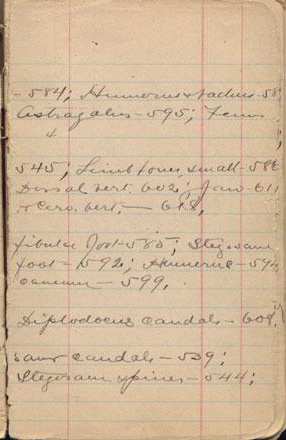 - 584; Humerus & radius - 58
Astragalus - 595; Femur
545; Limb bones small - 586
Dorsal vert. 602; Jaw - 611
& Cerv. vert. - 618,
fibula foot - 585; Stegosaur
foot - 592; Humerus - 594
- 599.
Diplodocus caudals - 608.
saur caudals - 539;
Stegosaur spines - 544;